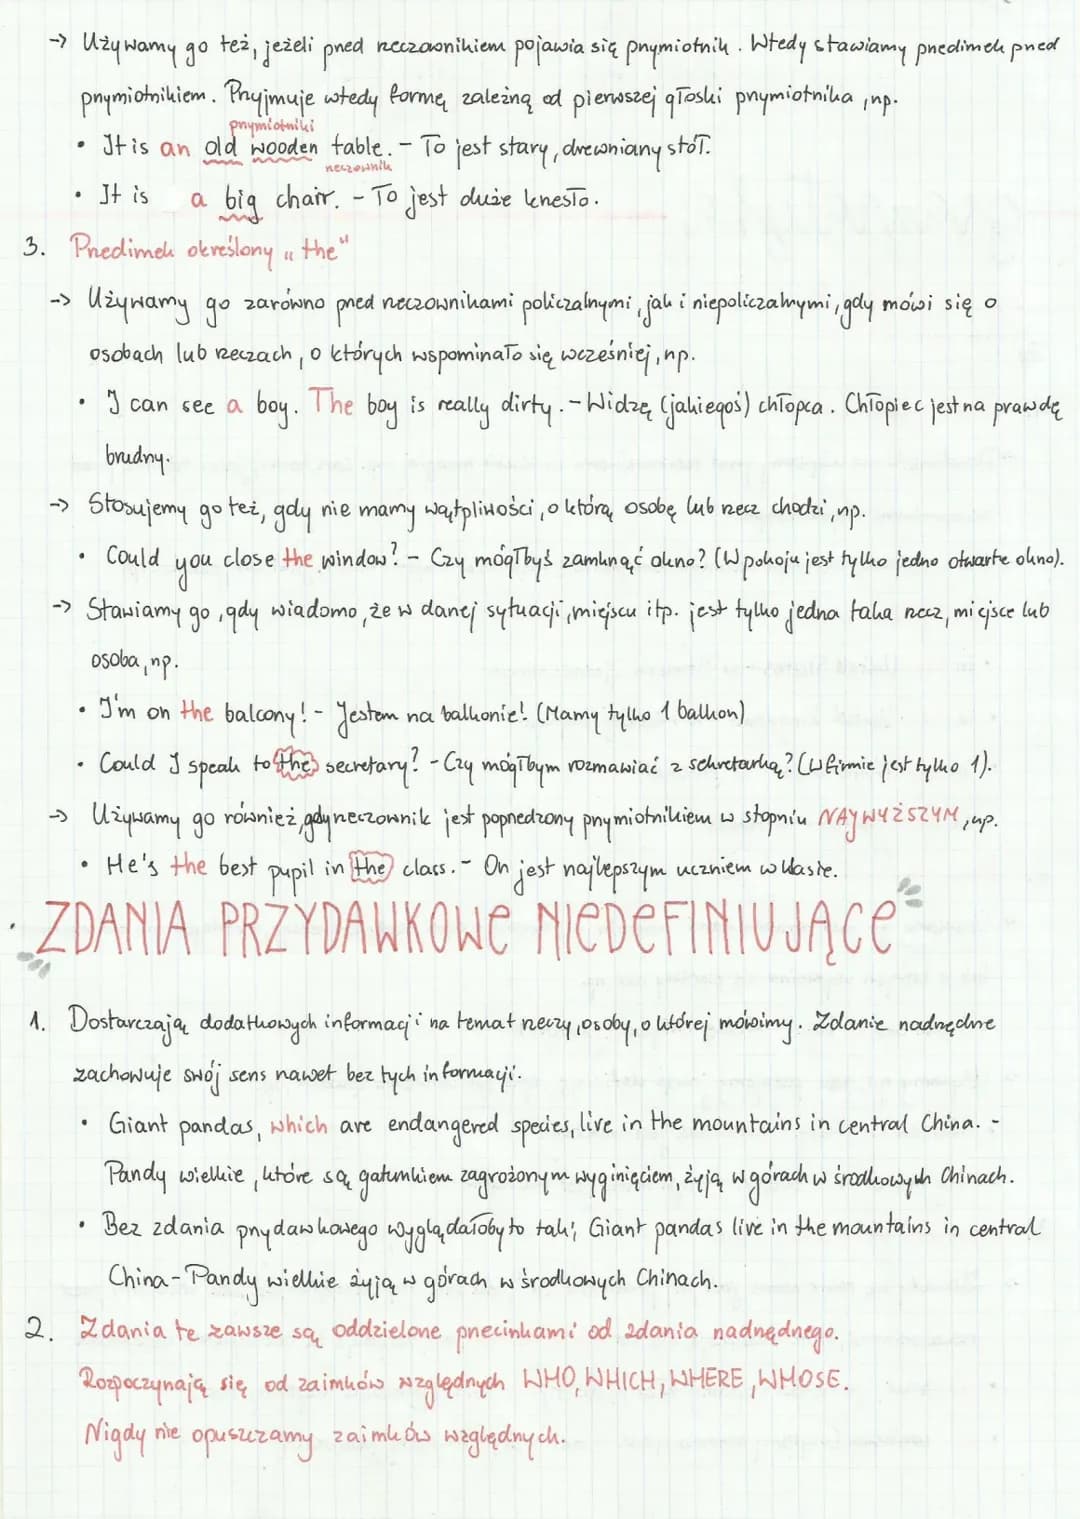 -> Używamy go też, jeżeli przed rzeczownikiem pojawia się przymiotnik. Wtedy stawiamy przedimek przed
przymiotnikiem. Przyjmuje wtedy formę zależną od pierwszej głoski przymiotnika, np.
przymiotniki
• It is an old wooden table. - To jest stary, drewniany stół.
rzeczownik
• It is a big chair. - To jest duże krzesło.
3. Przedimek określony „the"
-> Używamy go zarówno przed rzeczownikami policzalnymi, jak i niepoliczalnymi, gdy mówi się o
osobach lub rzeczach, o których wspominało się wcześniej, np.
• I can see a boy. The boy is really dirty. - Widzę (jakiegoś) chłopca. Chłopiec jest na prawdę
brudny.
-> Stosujemy go też, gdy nie mamy wątpliwości, o którą osobę lub rzecz chodzi, np.
• Could you close the window? - Czy mógłbyś zamknąć okno? (W pokoju jest tylko jedno otwarte okno).
-> Stawiamy go, gdy wiadomo, że w danej sytuacji, miejscu itp. jest tylko jedna taka rzecz, miejsce lub
osoba, np.
• I'm on the balcony! - Jestem na balkonie! (Mamy tylko 1 balkon)
• Could I speak to the secretary? - Czy mógłbym rozmawiać z sekretarką? (W firmie jest tylko 1).
-> Używamy go również, gdy rzeczownik jest poprzedzony przymiotnikiem w stopniu NAJWYŻSZYM, np.
• He's the best pupil in the class. - On jest najlepszym uczniem w klasie.
• ZDANIA PRZYDAWKOWE NIEDEFINIUJĄCE
1. Dostarczają dodatkowych informacji na temat rzeczy, osoby, o której mówimy. Zdanie nadrzędne
zachowuje swój sens nawet bez tych informacji.
• Giant pandas, which are endangered species, live in the mountains in central China. -
Pandy wielkie, które są gatunkiem zagrożonym wyginięciem, żyją w górach w środkowych Chinach.
• Bez zdania przydawkowego wyglądałoby to tak; Giant pandas live in the mountains in central
China - Pandy wielkie żyją w górach w środkowych Chinach.
2. Zdania te zawsze są oddzielone przecinkami od zdania nadrzędnego.
Rozpoczynają się od zaimków względnych WHO, WHICH, WHERE, WHOSE.
Nigdy nie opuszczamy zaimków względnych.